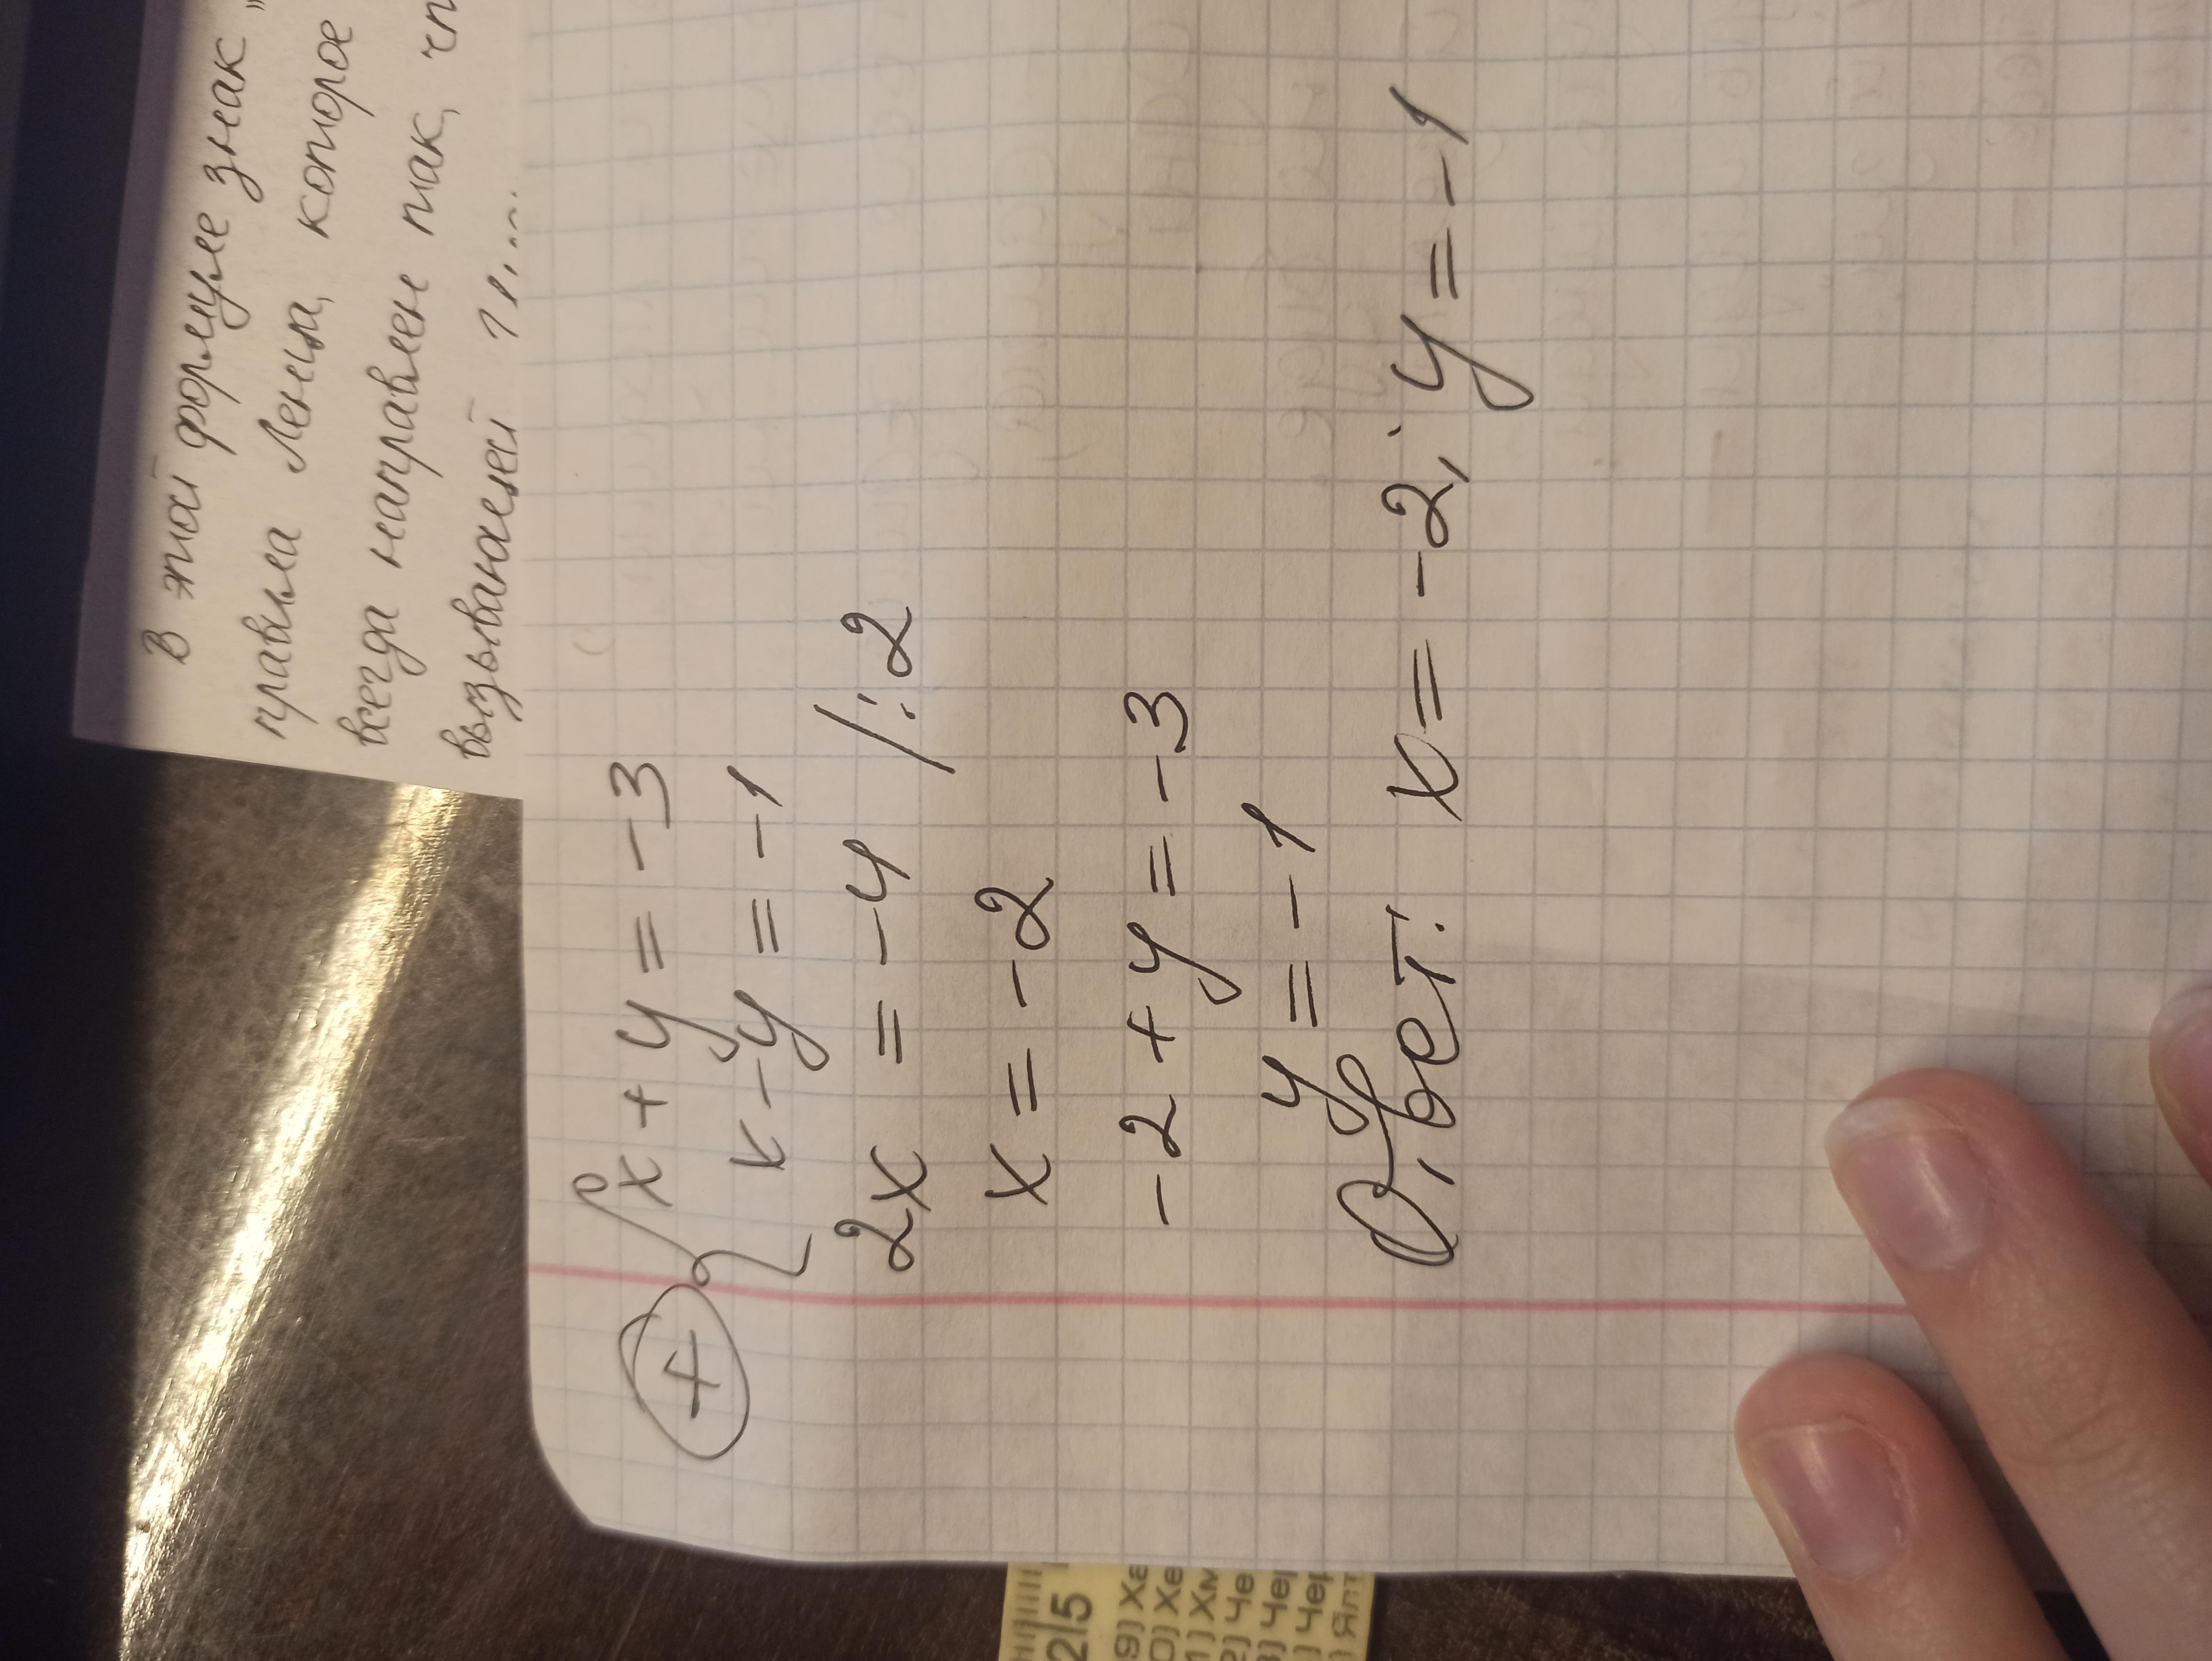 В этой формуле знак "
правила Ленца, которое
всегда направлен так,
вызывающей
+ { x + y = -3
x - y = -1
2x = -4 / : 2
x = -2
-2 + y = -3
y = -1
Ответ: x = -2, y = -1
2|5
9) Ха
0) Хе
1) Хм
2) Че
3) Чер
) Чер
) Ялт